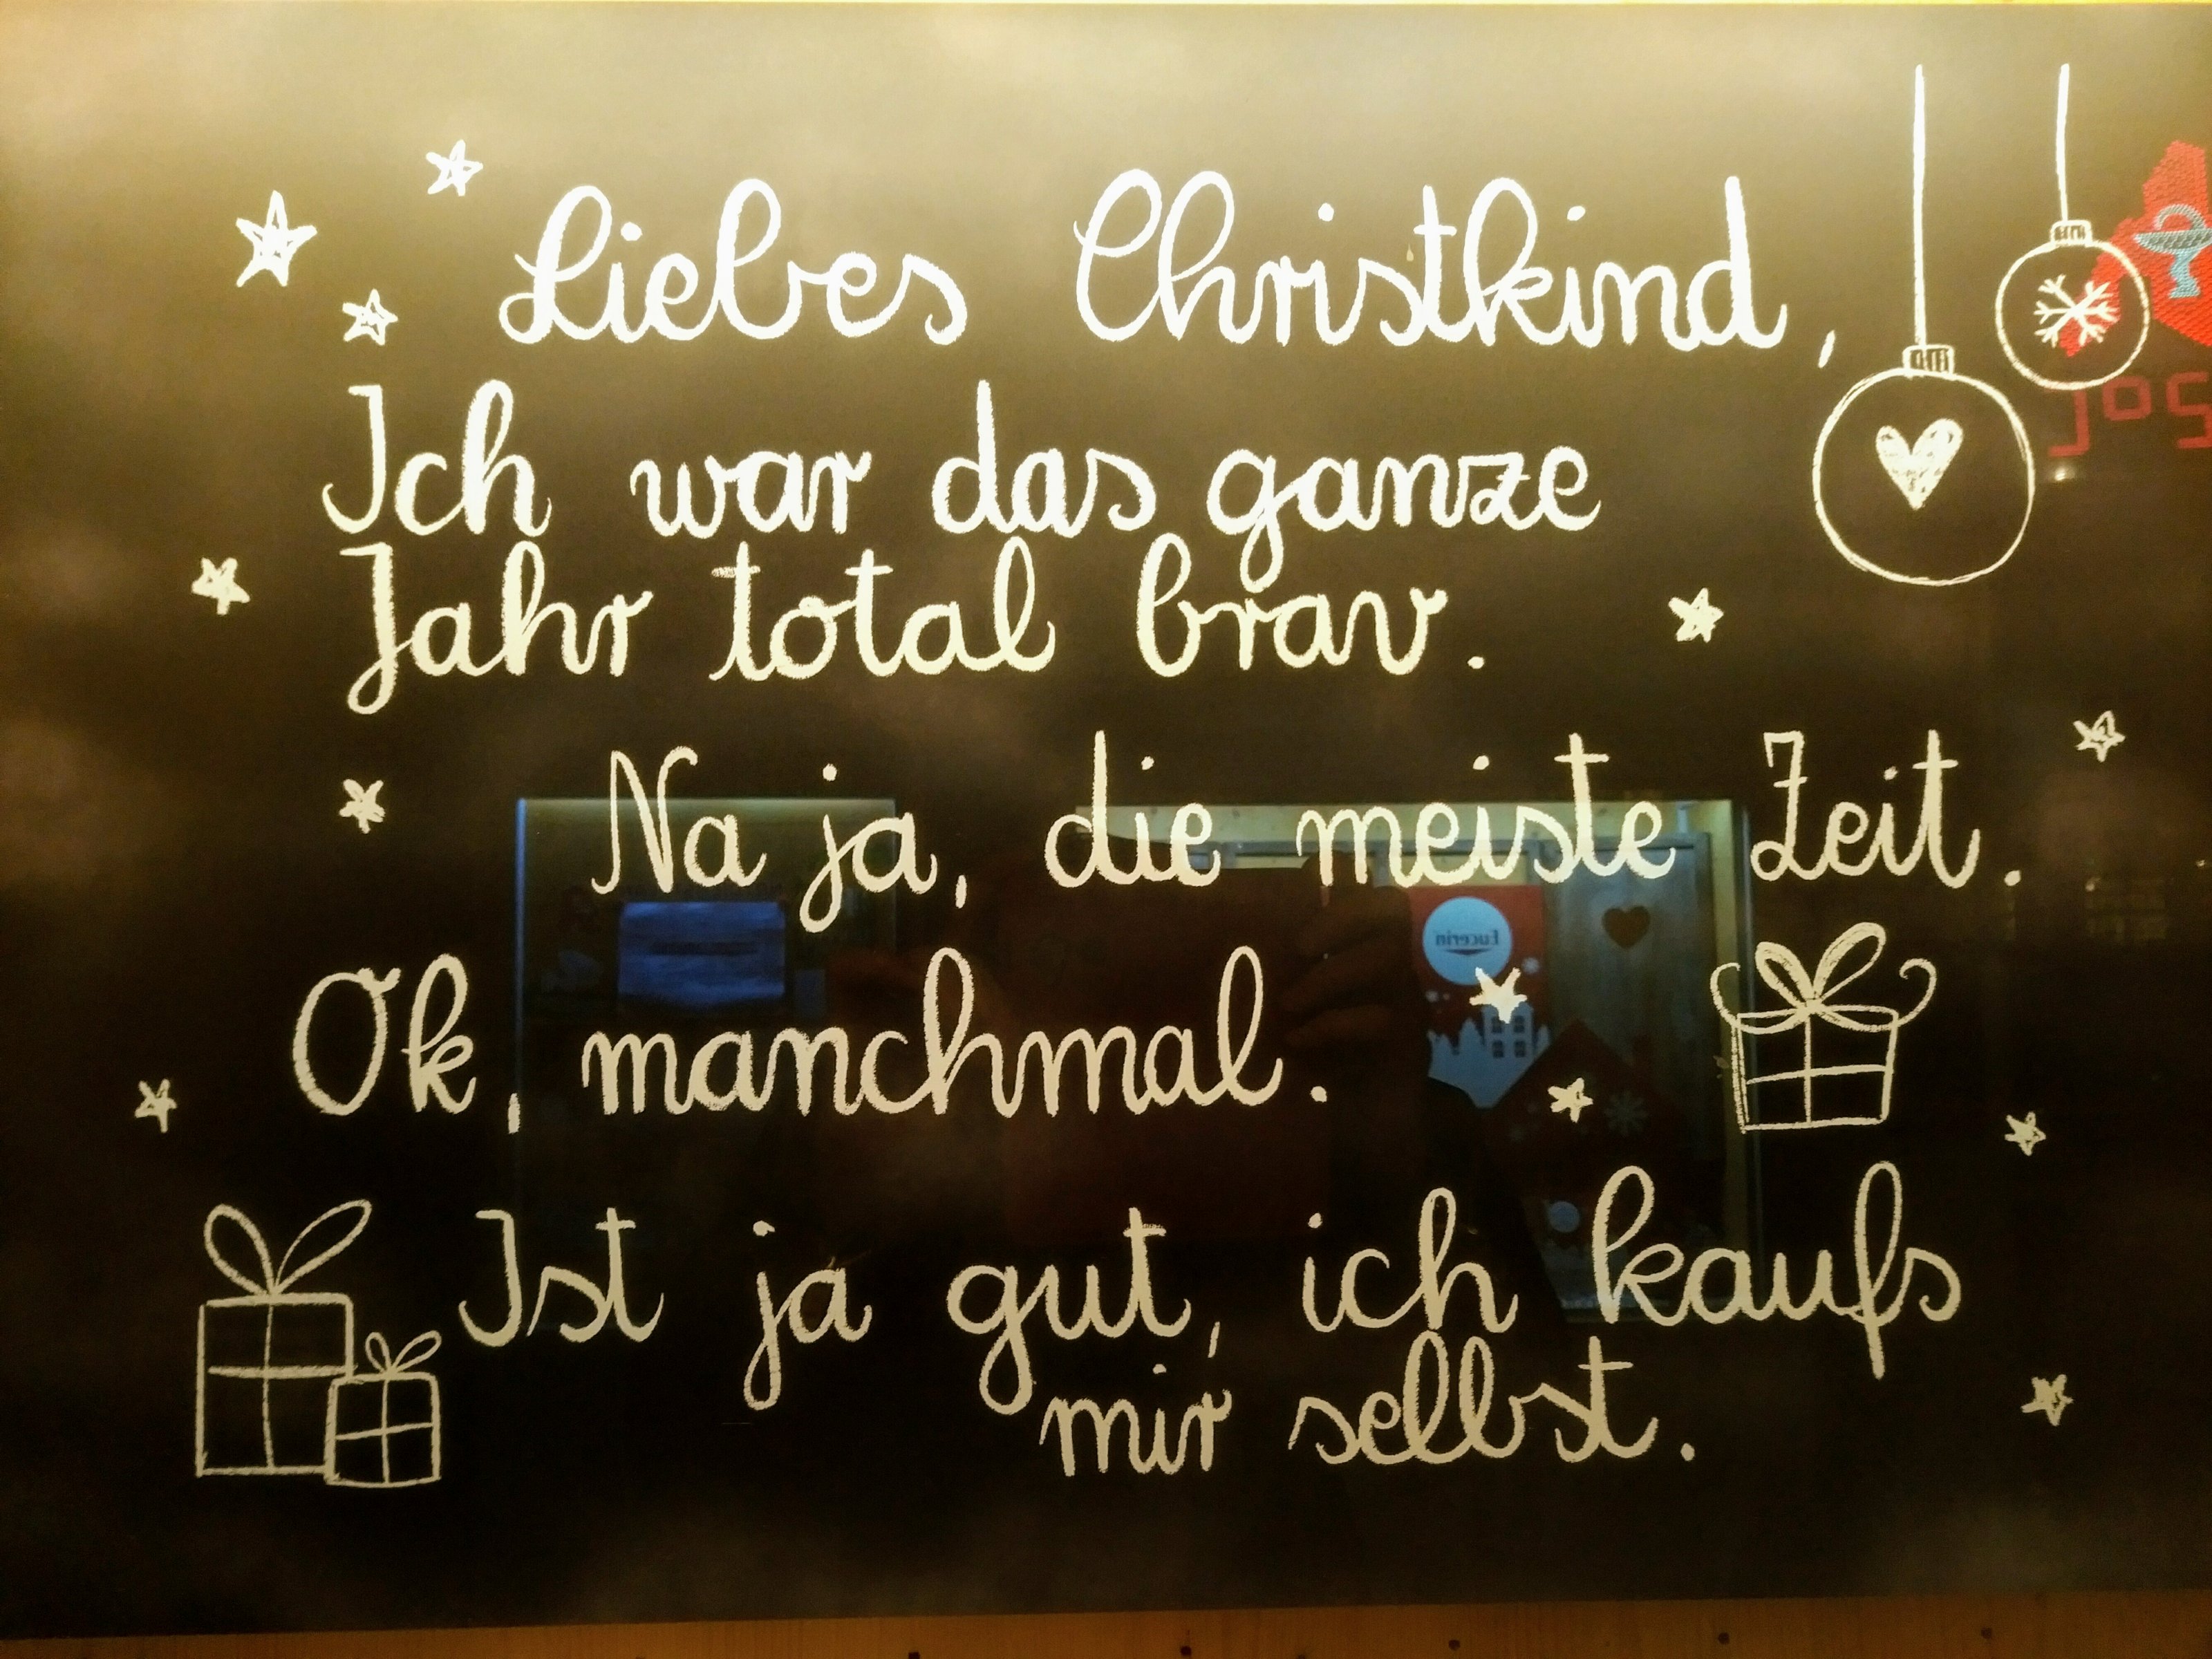 Liebes Christkind,
Ich war das ganze
Jahr total brav.
Na ja, die meiste Zeit.
Ok, manchmal.
Ist ja gut, ich kaufs
mir selbst.
Eucerin